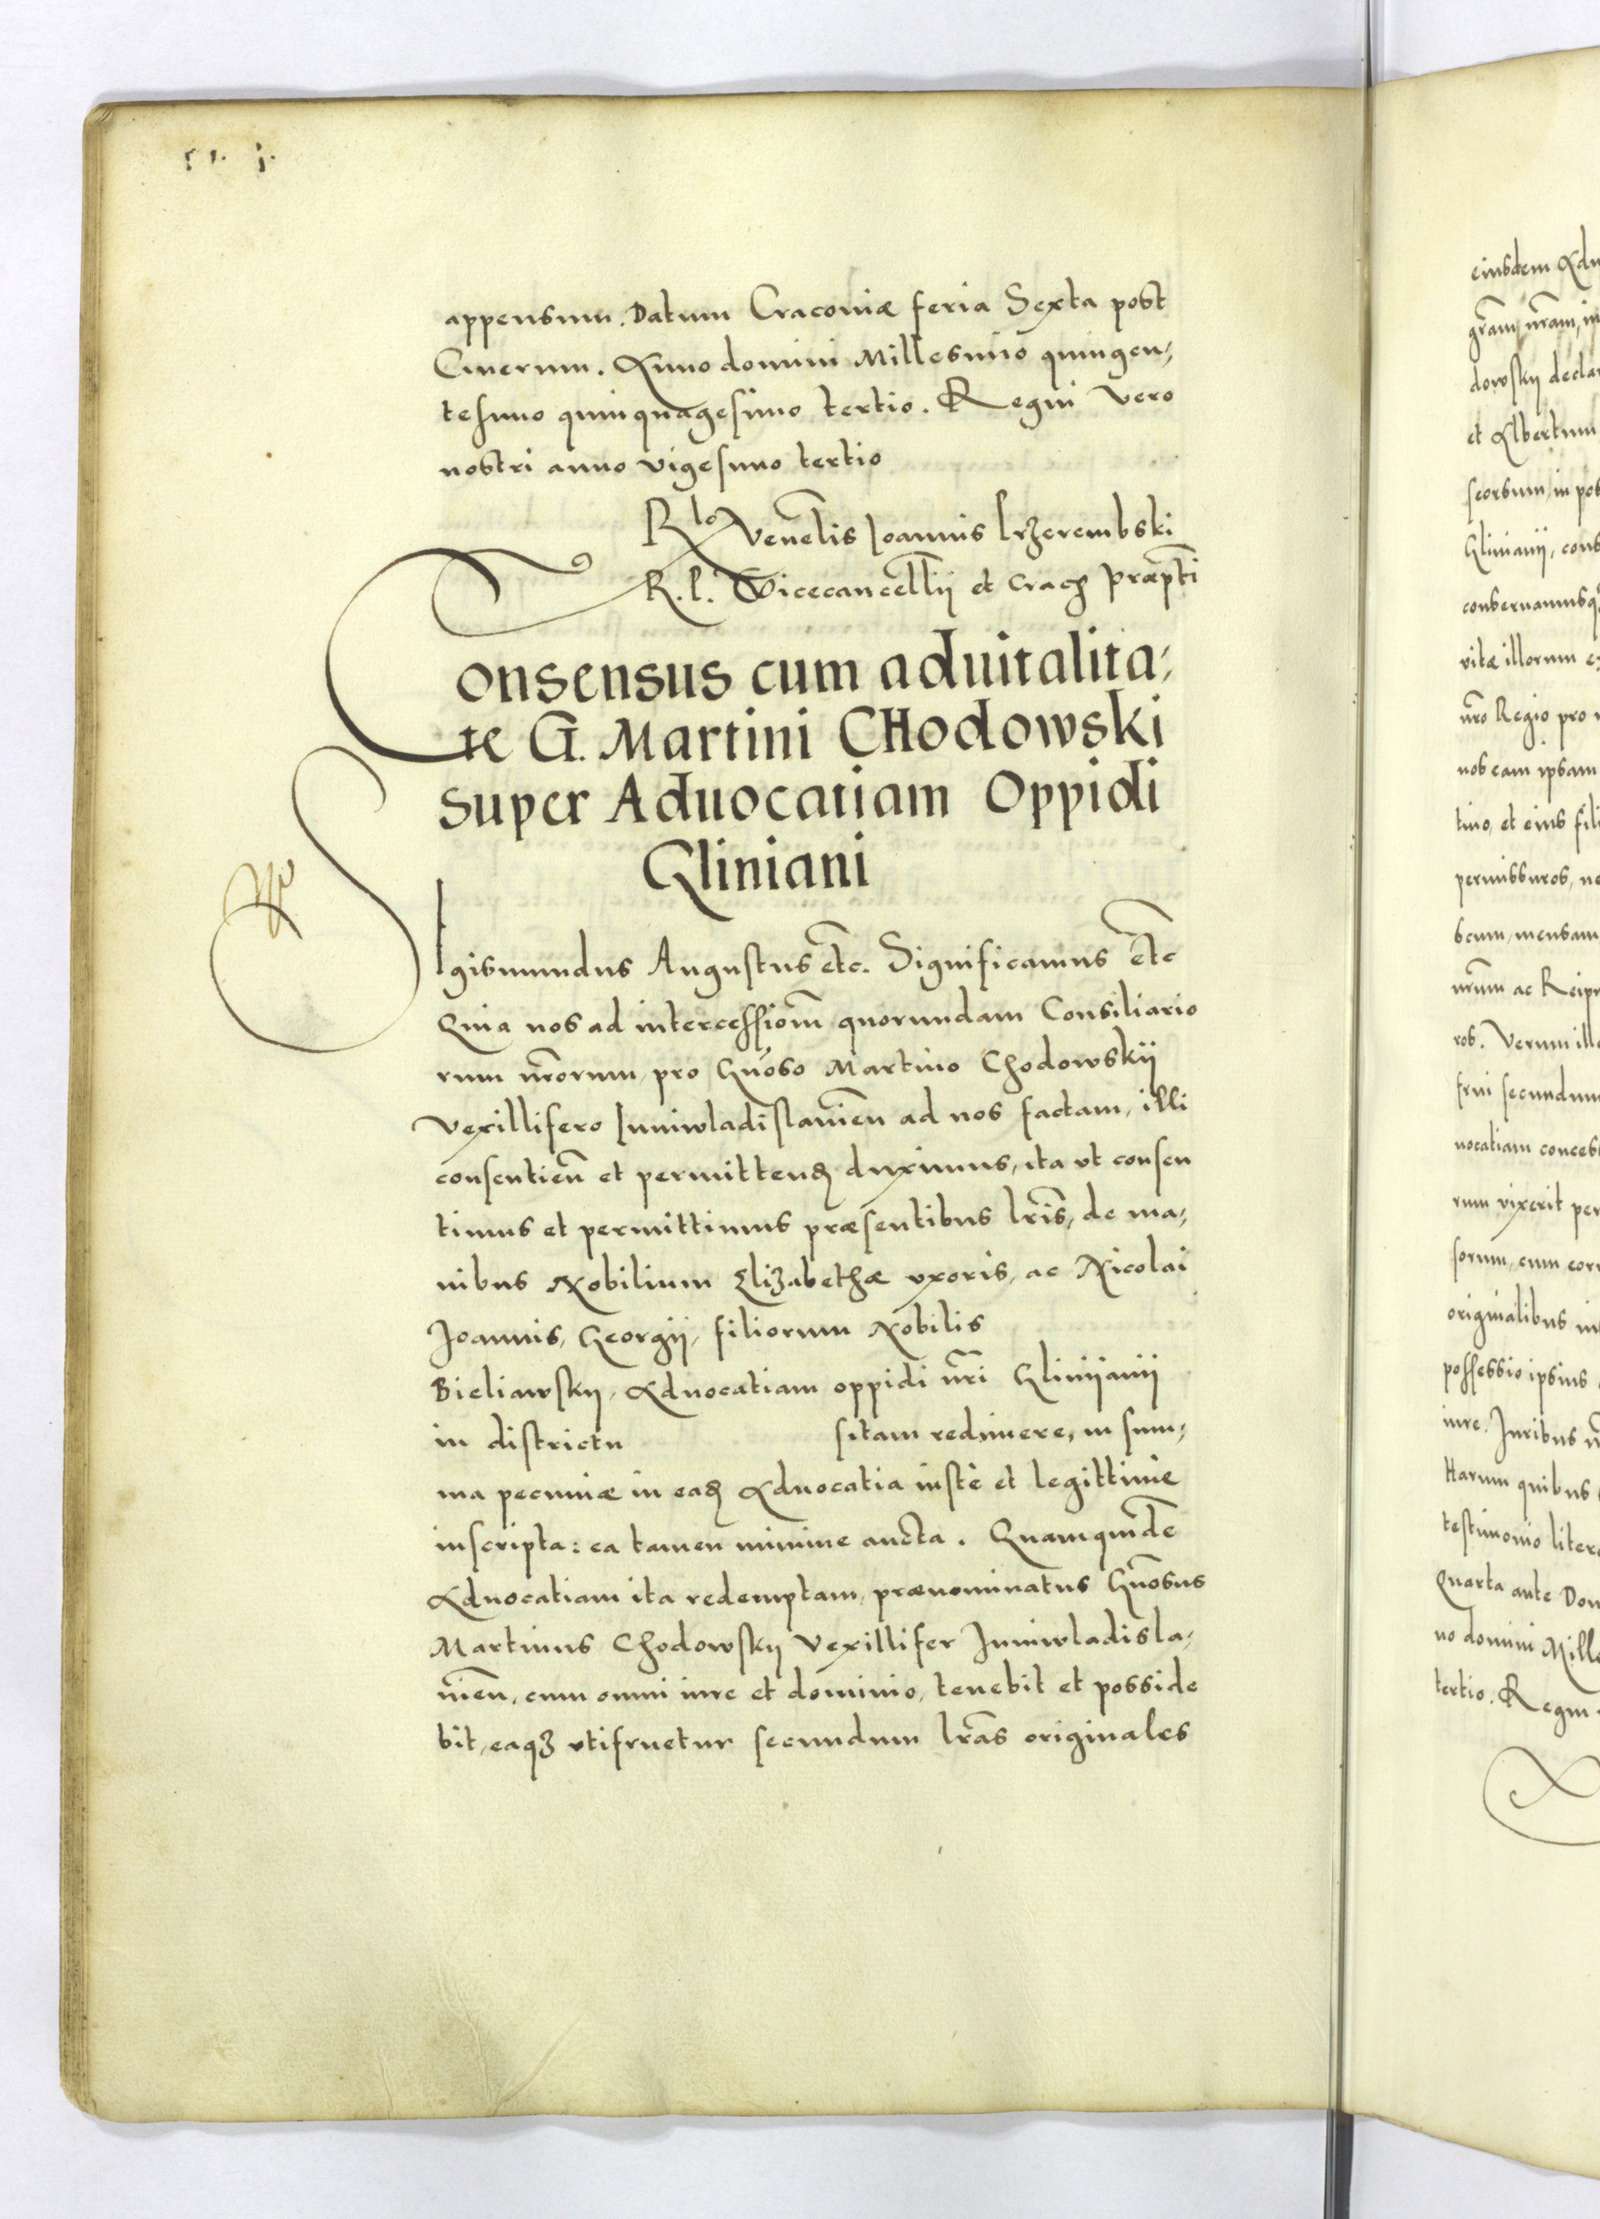 appensum. Datum Cracoviæ feria Sexta post
Cinerum. Anno domini Millesimo quingen,
tesimo quinquagesimo tertio. Regni vero
nostri anno vigesimo tertio
Rlo Venelis Ioannis Przerembski
R. P. Vicecancellij et Crac præpti
Consensus cum aduitalita,
te G. Martini CHodowski
super Aduocatiam Oppidi
Gliniani
Sigismundus Augustus etc. Significamus etc
Quia nos ad intercessiom quorundam Consiliario
rum nrorum, pro Gnoso Martino Chodowskij
Vexillifero Iuniwladislauien ad nos factam, illi
consentien et permittend duximus, ita vt consen
timus et permittimus præsentibus lris, de ma,
nibus Nobilium Elizabethæ vxoris, ac Nicolai
Joannis, Georgij, filiorum Nobilis
Bieliawskij, Aduocatiam oppidi nri Glinijanij
in districtu sitam redimere, in sum,
ma pecuniæ in ead Aduocatia iustè et legittimè
inscripta: ea tamen minime aucta. Quamquide
Aduocatiam ita redemptam, prænominatus Gnosus
Martinus Chodowskij Vexillifer Juniwladisla,
uien, cum omni iure et dominio, tenebit et posside
bit, eaqз vtifruetur secundum lras originales
eiusdem Adu
gram nram, in
dowskij decla
et Albertum
seorsum, in pos
Glinianij, cons
conseruamusq
vitæ illorum ex
nro Regio pro
nos eam ipsam
tino, et eius fili
permissuros, ne
scum, mensam
nrum ac Reip
ros. Verum ill
frui secundum
uocatiam conces
rum vixerit per
sorum, cum
originalibus in
possessio ipsius
iure. Juribus n
Harum quibus
testimonio liter
Quarta ante Dom
no domini Mille
tertio. Regni